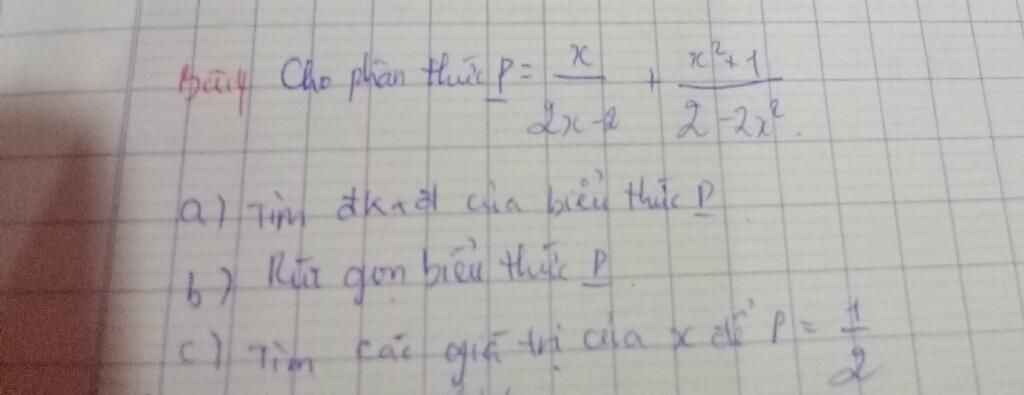 Bài 4 Cho phân thức P = x/(2x-2) + (x²+1)/(2-2x²).
a) Tìm đkxđ của biểu thức P
b) Rút gọn biểu thức P
c) Tìm các giá trị của x để P = 1/2